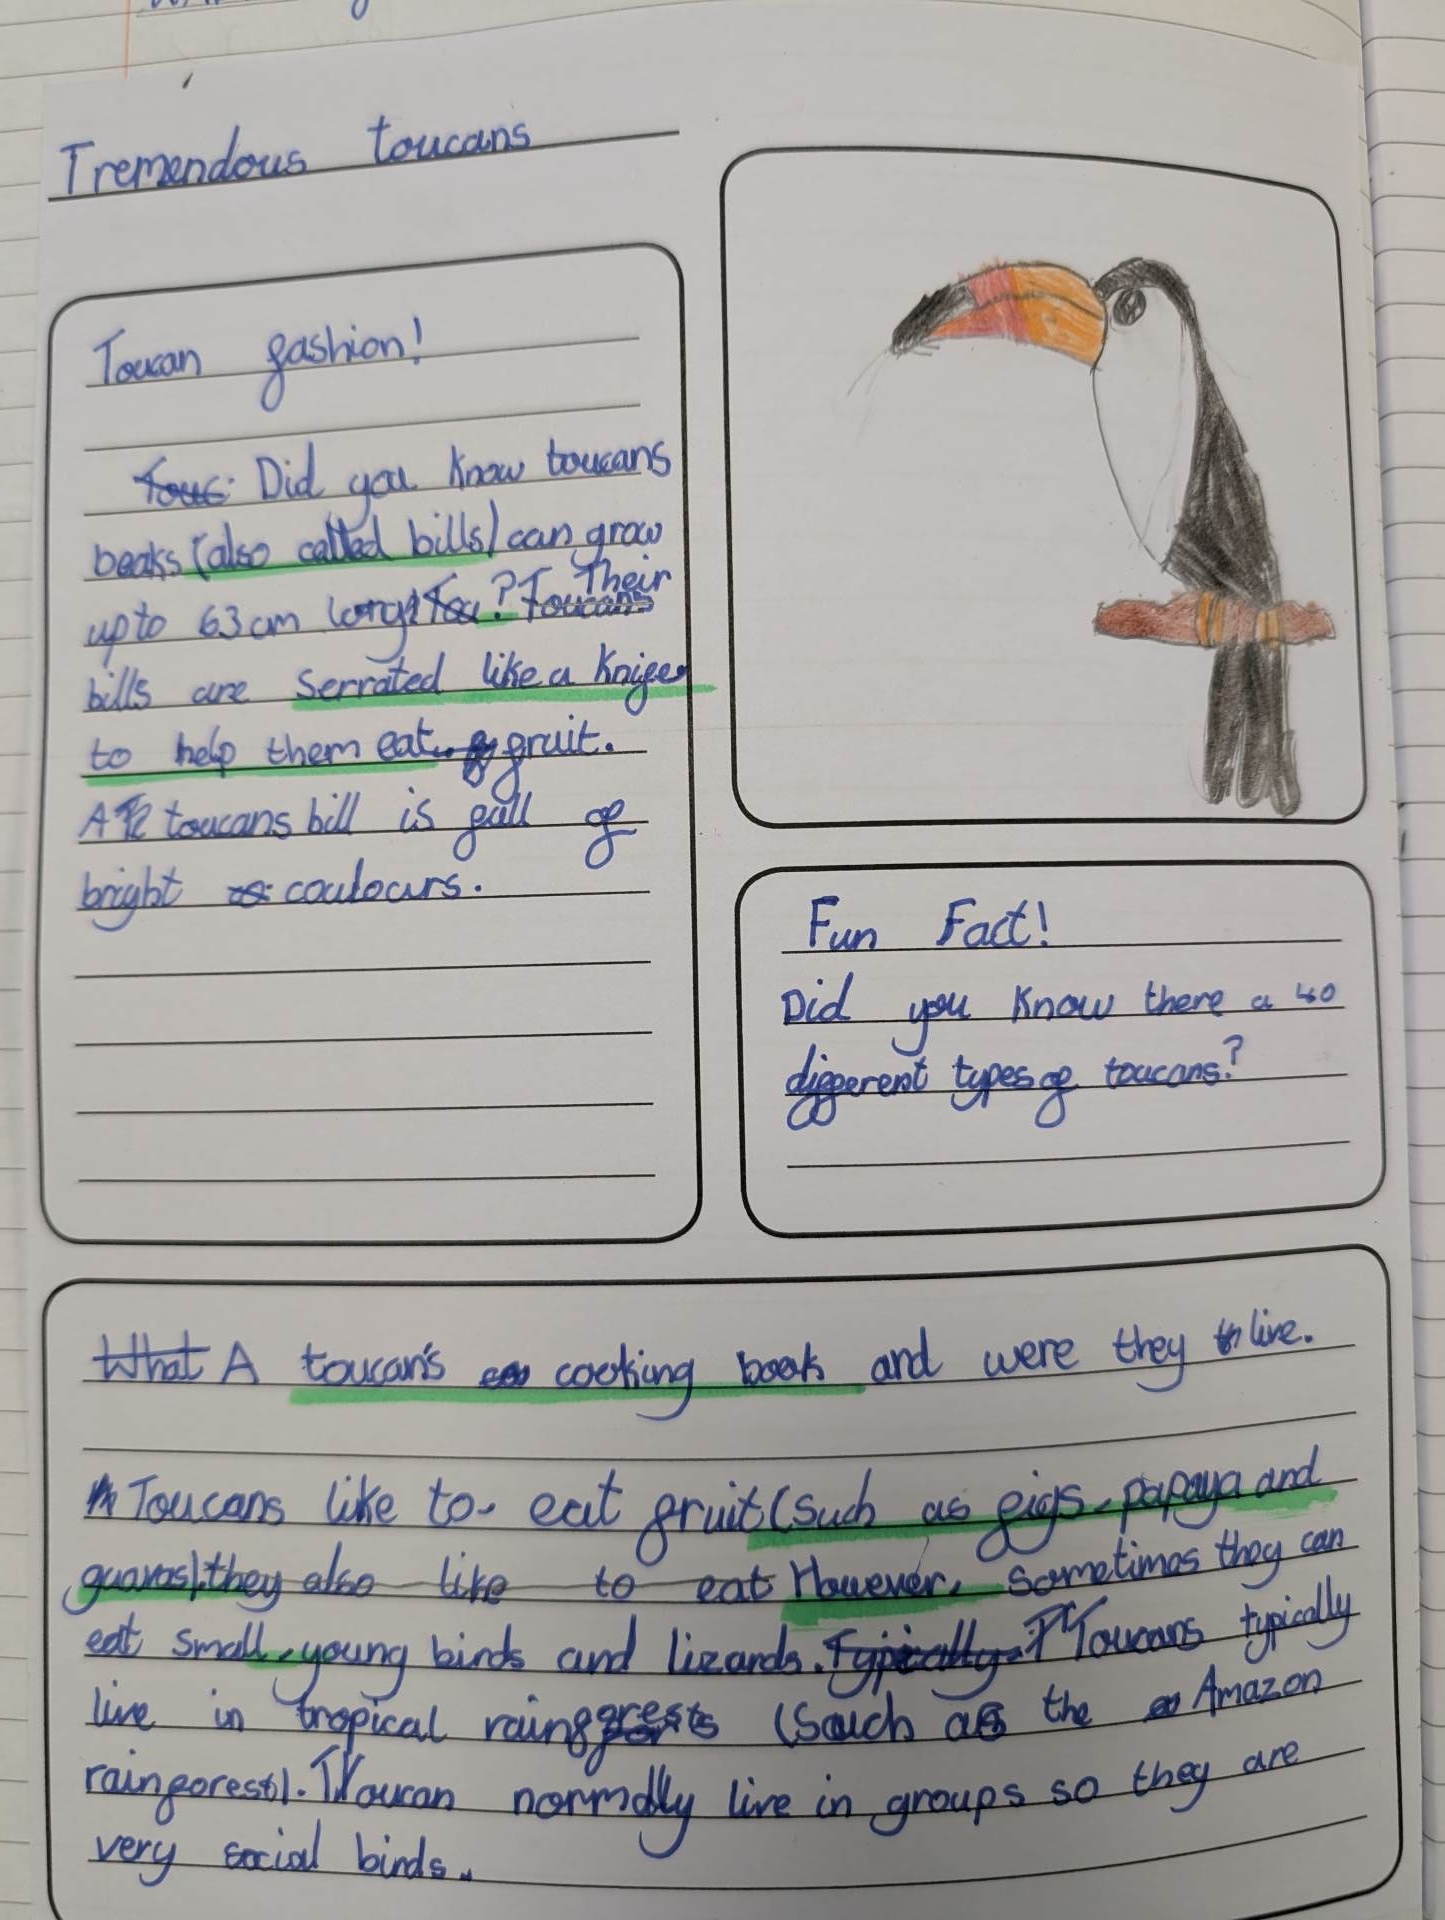 Tremendous toucans
Toucan fashion!
Touc. Did you know toucans
beaks (also called bills) can grow
up to 63cm long? Toucans Their
bills are serrated like a knife
to help them eat. fruit.
A toucans bill is full of
bright coulours.
Fun Fact!
Did you know there a 40
different types of toucans?
What A toucan's cooking book and were they live.
Toucans like to eat fruit (such as figs, papaya and
guavas). they also like to eat However, sometimes they can
eat small, young birds and lizards. Typically. Toucans typically
live in tropical rainforests (such as the Amazon
rainforest). Toucan normally live in groups so they are
very social birds.